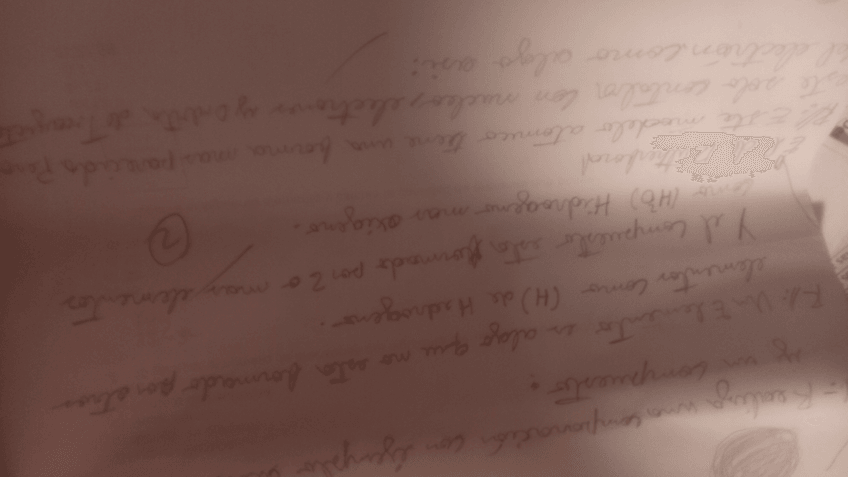 1- Realiza una comparación con ejemplo un
y un compuesto.
R/: Un Elemento es algo que no esta formado por otros
elementos como (H) de Hidrogeno.
Y el compuesto esta formado por 2 o mas elementos
como (H2O) Hidrogeno mas oxigeno.
2
R/: Este modelo atomico tiene una forma mas parecida pero
este solo contaba con nucleo, electrones y orbita de Trayecto
el electrón como algo asi: